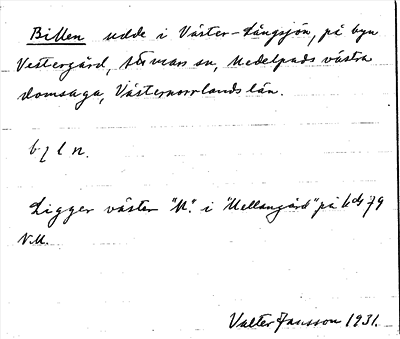 Billen udde i Väster-Långsjön, på byn
Vestergård, Stuvars sn, Medelpads västra
domsaga, Västernorrlands län.
Ligger väster "M". i "Mellangård" på kbl 79
N.M.
Valter Jansson 1931.